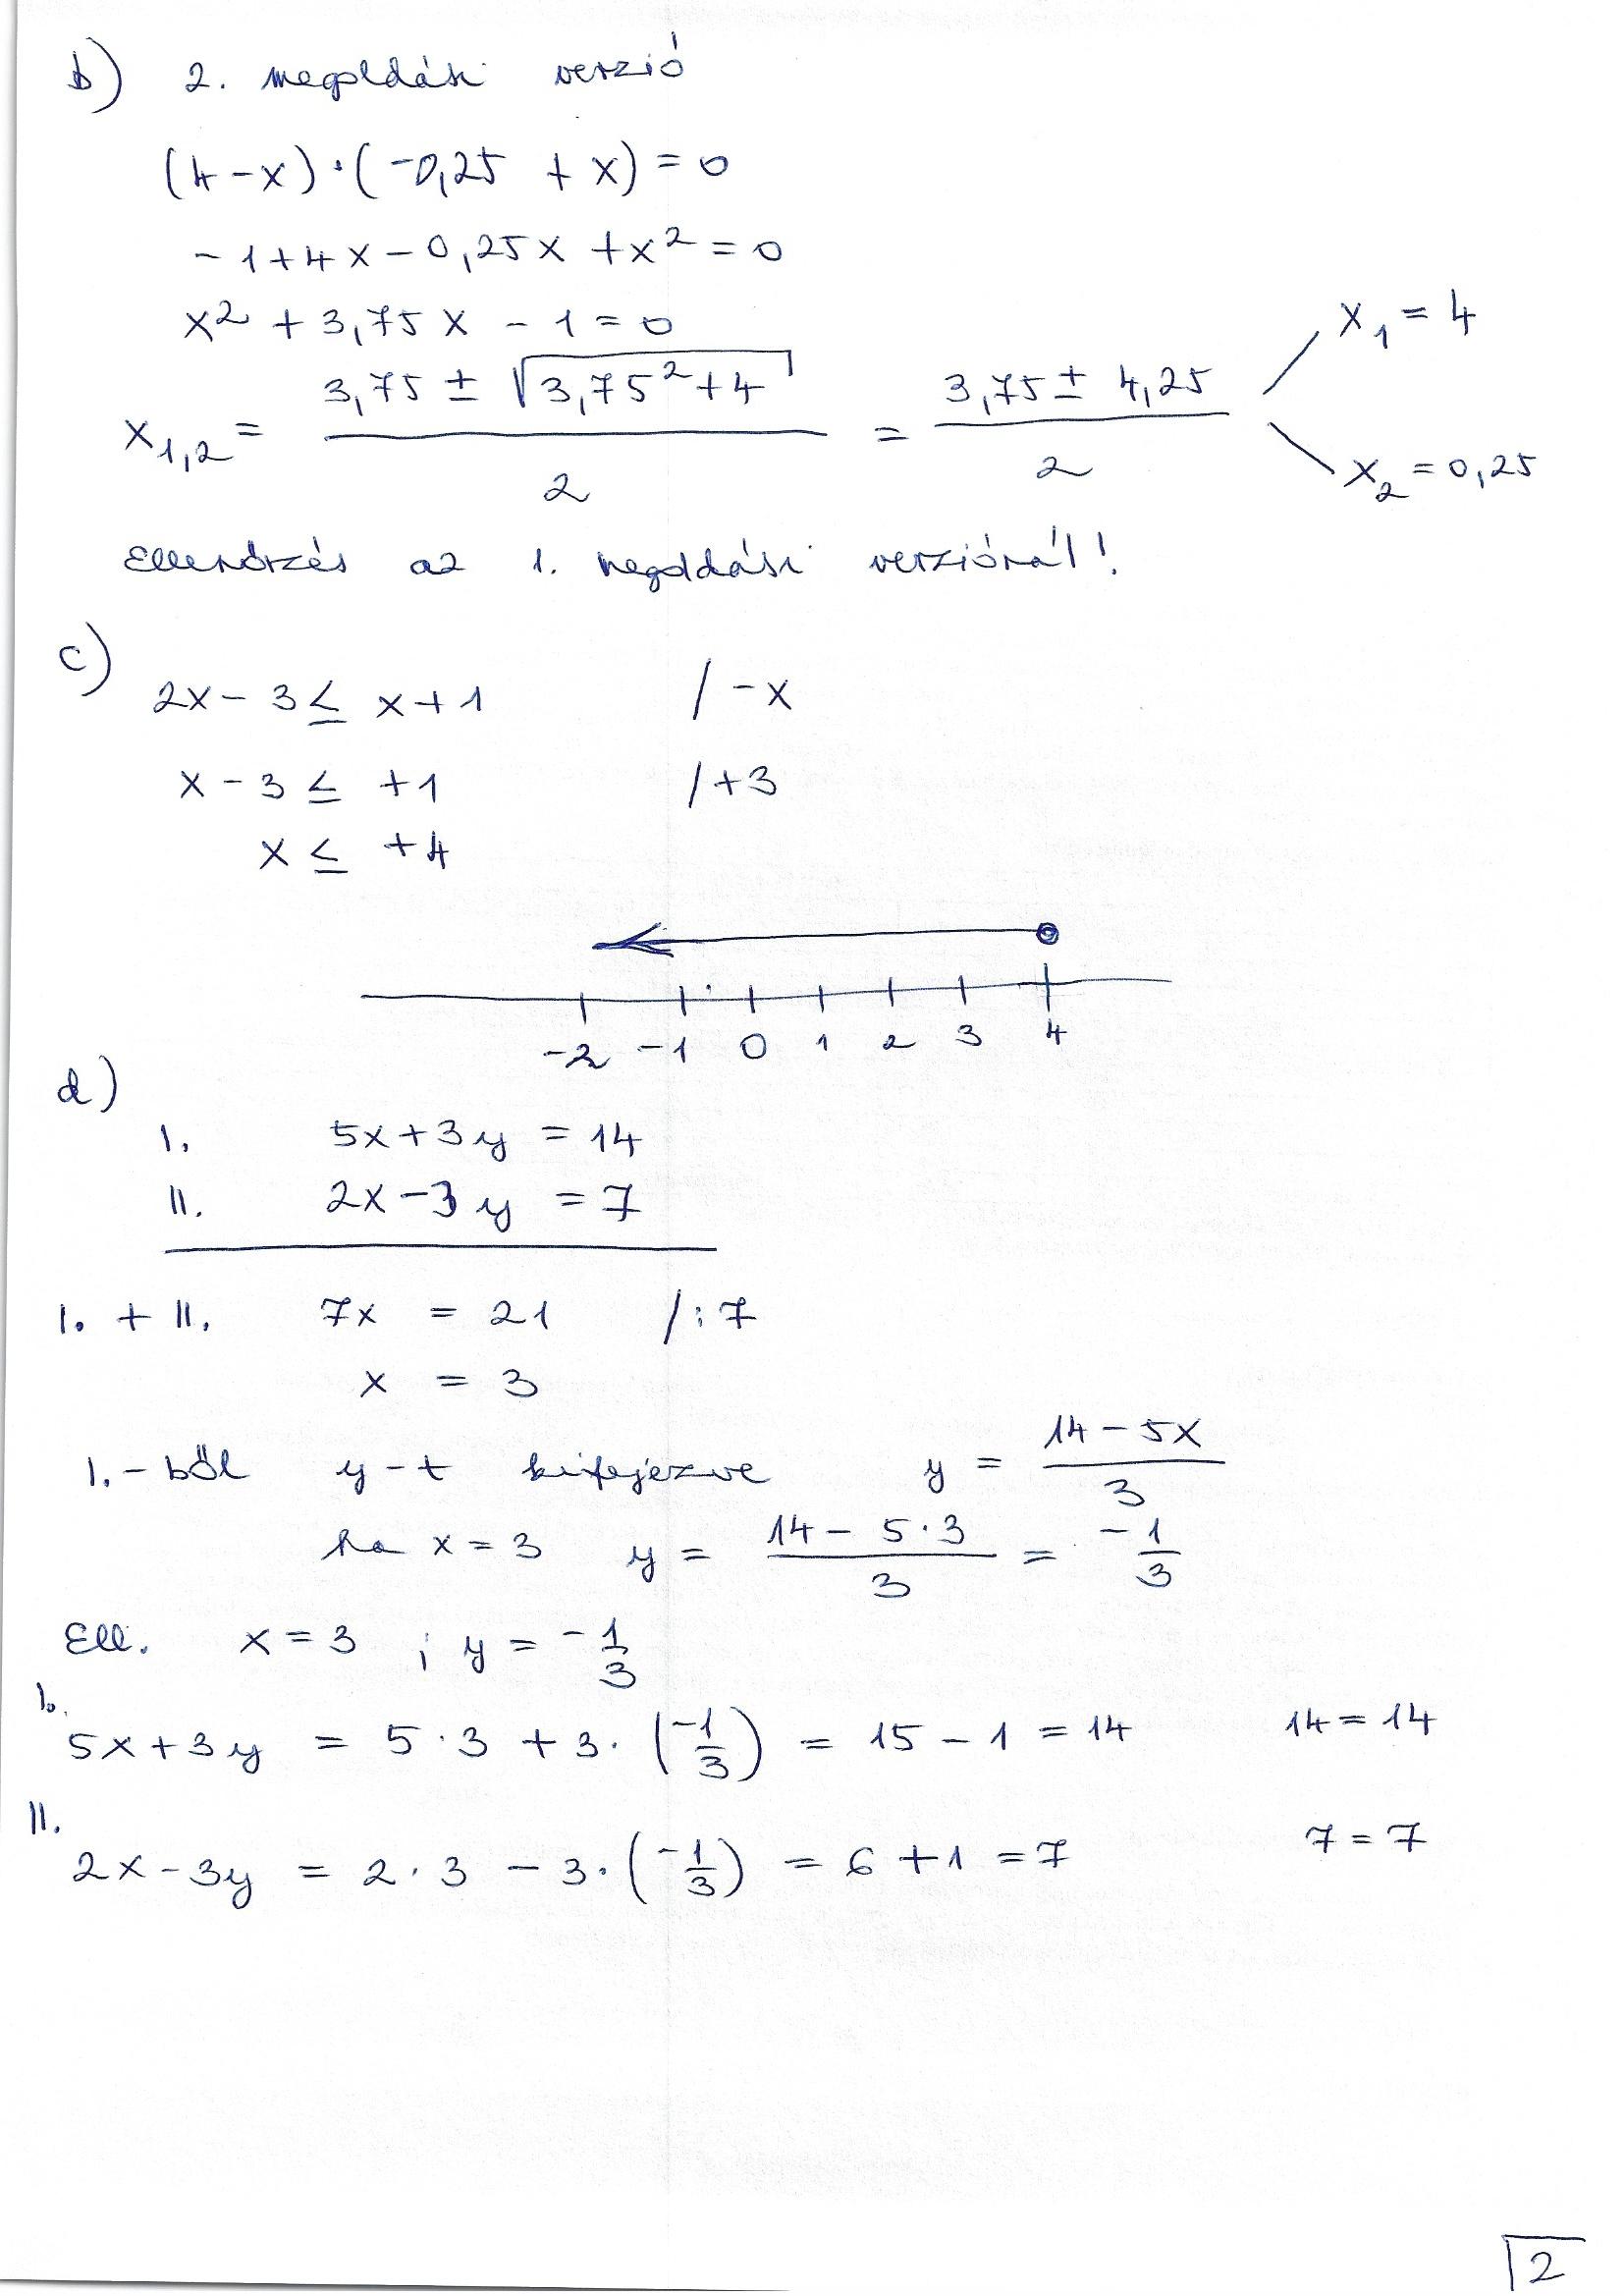 b) 2. megoldási verzió
(4-x)·(-0,25 + x) = 0
-1+4x-0,25x+x² = 0
x² + 3,75x - 1 = 0
x₁,₂ = (3,75 ± √(3,75²+4)) / 2 = (3,75 ± 4,25) / 2
x₁ = 4
x₂ = 0,25
Ellenőrzés az 1. megoldási verziónál!
c)
2x - 3 ≤ x+1 / -x
x - 3 ≤ +1 /+3
x ≤ +4
-2 -1 0 1 2 3 4
d)
I. 5x+3y = 14
II. 2x-3y = 7
I. + II. 7x = 21 /:7
x = 3
I.-ből y-t kifejezve y = (14 - 5x) / 3
ha x = 3 y = (14 - 5·3) / 3 = -1/3
Ell. x = 3 ; y = -1/3
I.
5x+3y = 5·3 + 3·(-1/3) = 15 - 1 = 14 14 = 14
II.
2x-3y = 2·3 - 3·(-1/3) = 6 + 1 = 7 7 = 7
2